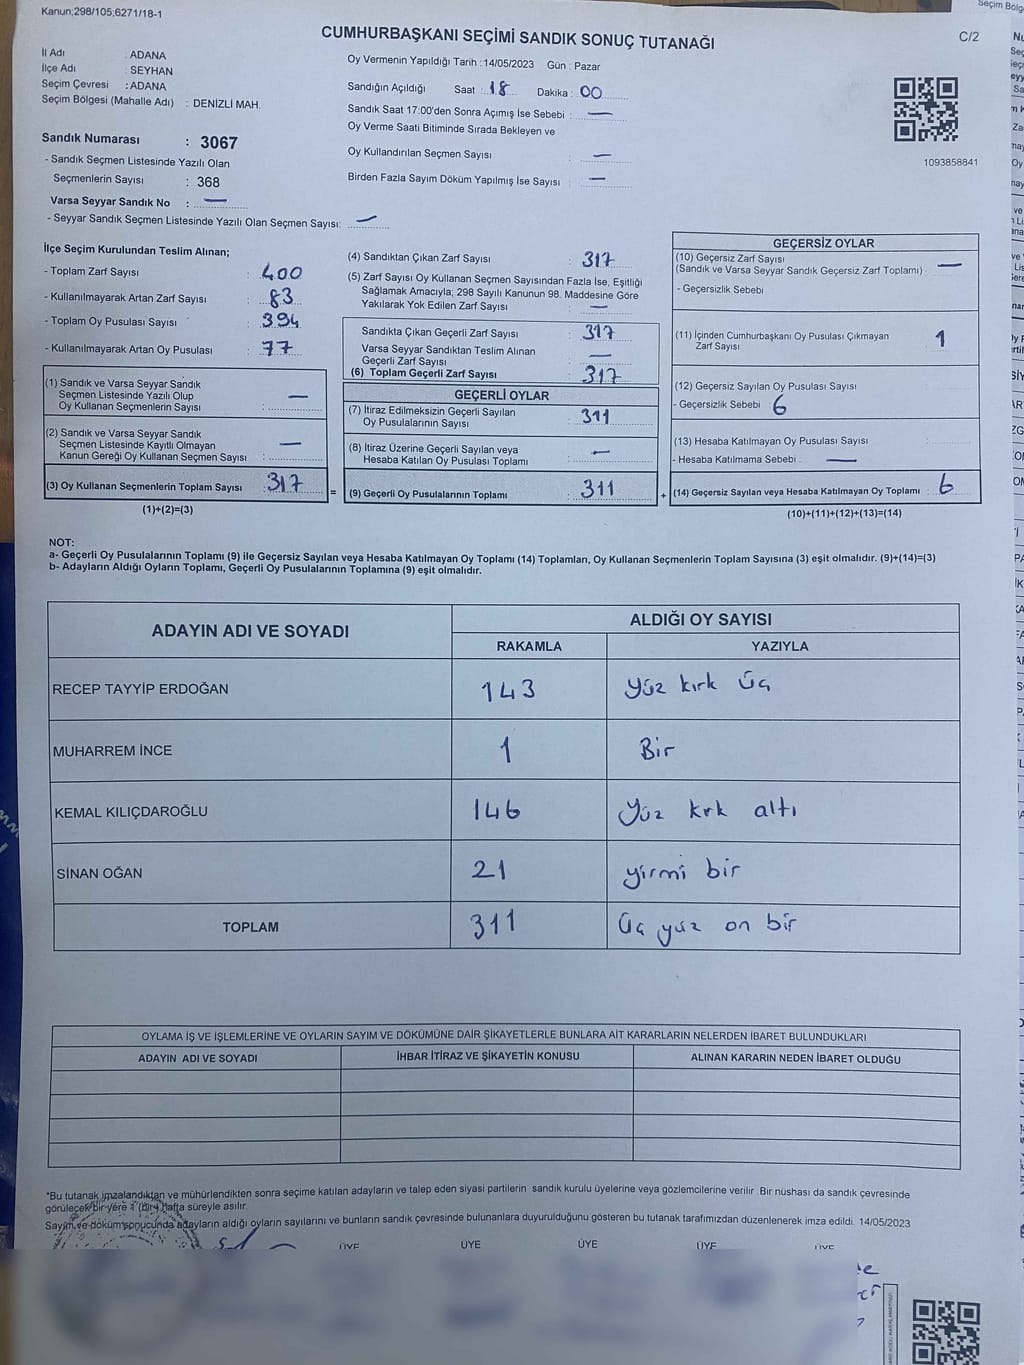 Kanun;298/105;6271/18-1
CUMHURBAŞKANI SEÇİMİ SANDIK SONUÇ TUTANAĞI
C/2
İl Adı : ADANA
İlçe Adı : SEYHAN
Seçim Çevresi : ADANA
Seçim Bölgesi (Mahalle Adı) : DENİZLİ MAH.
Oy Vermenin Yapıldığı Tarih :14/05/2023 Gün : Pazar
Sandığın Açıldığı Saat : 18 Dakika : 00
Sandık Saat 17:00'den Sonra Açımış İse Sebebi : —
Oy Verme Saati Bitiminde Sırada Bekleyen ve
Oy Kullandırılan Seçmen Sayısı : —
Birden Fazla Sayım Döküm Yapılmış İse Sayısı : —
1093858841
Sandık Numarası : 3067
- Sandık Seçmen Listesinde Yazılı Olan
Seçmenlerin Sayısı : 368
Varsa Seyyar Sandık No : —
- Seyyar Sandık Seçmen Listesinde Yazılı Olan Seçmen Sayısı: —
İlçe Seçim Kurulundan Teslim Alınan;
- Toplam Zarf Sayısı : 400
- Kullanılmayarak Artan Zarf Sayısı : 83
- Toplam Oy Pusulası Sayısı : 394
- Kullanılmayarak Artan Oy Pusulası : 77
(1) Sandık ve Varsa Seyyar Sandık
Seçmen Listesinde Yazılı Olup
Oy Kullanan Seçmenlerin Sayısı : —
(2) Sandık ve Varsa Seyyar Sandık
Seçmen Listesinde Kayıtlı Olmayan
Kanun Gereği Oy Kullanan Seçmen Sayısı : —
(3) Oy Kullanan Seçmenlerin Toplam Sayısı : 317
(1)+(2)=(3)
=
(4) Sandıktan Çıkan Zarf Sayısı : 317
(5) Zarf Sayısı Oy Kullanan Seçmen Sayısından Fazla İse, Eşitliği
Sağlamak Amacıyla; 298 Sayılı Kanunun 98. Maddesine Göre
Yakılarak Yok Edilen Zarf Sayısı : —
Sandıkta Çıkan Geçerli Zarf Sayısı : 317
Varsa Seyyar Sandıktan Teslim Alınan
Geçerli Zarf Sayısı : —
(6) Toplam Geçerli Zarf Sayısı : 317
GEÇERLİ OYLAR
(7) İtiraz Edilmeksizin Geçerli Sayılan
Oy Pusulalarının Sayısı : 311
(8) İtiraz Üzerine Geçerli Sayılan veya
Hesaba Katılan Oy Pusulası Toplamı : —
(9) Geçerli Oy Pusulalarının Toplamı : 311
+
GEÇERSİZ OYLAR
(10) Geçersiz Zarf Sayısı
(Sandık ve Varsa Seyyar Sandık Geçersiz Zarf Toplamı) : —
- Geçersizlik Sebebi
(11) İçinden Cumhurbaşkanı Oy Pusulası Çıkmayan
Zarf Sayısı 1
(12) Geçersiz Sayılan Oy Pusulası Sayısı
- Geçersizlik Sebebi 6
(13) Hesaba Katılmayan Oy Pusulası Sayısı
- Hesaba Katılmama Sebebi —
(14) Geçersiz Sayılan veya Hesaba Katılmayan Oy Toplamı : 6
(10)+(11)+(12)+(13)=(14)
NOT:
a- Geçerli Oy Pusulalarının Toplamı (9) ile Geçersiz Sayılan veya Hesaba Katılmayan Oy Toplamı (14) Toplamları, Oy Kullanan Seçmenlerin Toplam Sayısına (3) eşit olmalıdır. (9)+(14)=(3)
b- Adayların Aldığı Oyların Toplamı, Geçerli Oy Pusulalarının Toplamına (9) eşit olmalıdır.
ADAYIN ADI VE SOYADI
ALDIĞI OY SAYISI
RAKAMLA YAZIYLA
RECEP TAYYİP ERDOĞAN 143 Yüz kırk üç
MUHARREM İNCE 1 Bir
KEMAL KILIÇDAROĞLU 146 Yüz krk altı
SİNAN OĞAN 21 yirmi bir
TOPLAM 311 Üç yüz on bir
OYLAMA İŞ VE İŞLEMLERİNE VE OYLARIN SAYIM VE DÖKÜMÜNE DAİR ŞİKAYETLERLE BUNLARA AİT KARARLARIN NELERDEN İBARET BULUNDUKLARI
ADAYIN ADI VE SOYADI İHBAR İTİRAZ VE ŞİKAYETİN KONUSU ALINAN KARARIN NEDEN İBARET OLDUĞU
*Bu tutanak imzalandıktan ve mühürlendikten sonra seçime katılan adayların ve talep eden siyasi partilerin sandık kurulu üyelerine veya gözlemcilerine verilir. Bir nüshası da sandık çevresinde
görülecek bir yere 1 (bir) hafta süreyle asılır.
Sayım ve döküm sonucunda adayların aldığı oyların sayılarını ve bunların sandık çevresinde bulunanlara duyurulduğunu gösteren bu tutanak tarafımızdan düzenlenerek imza edildi. 14/05/2023
ÜYE ÜYE ÜYE ÜYE ÜYE